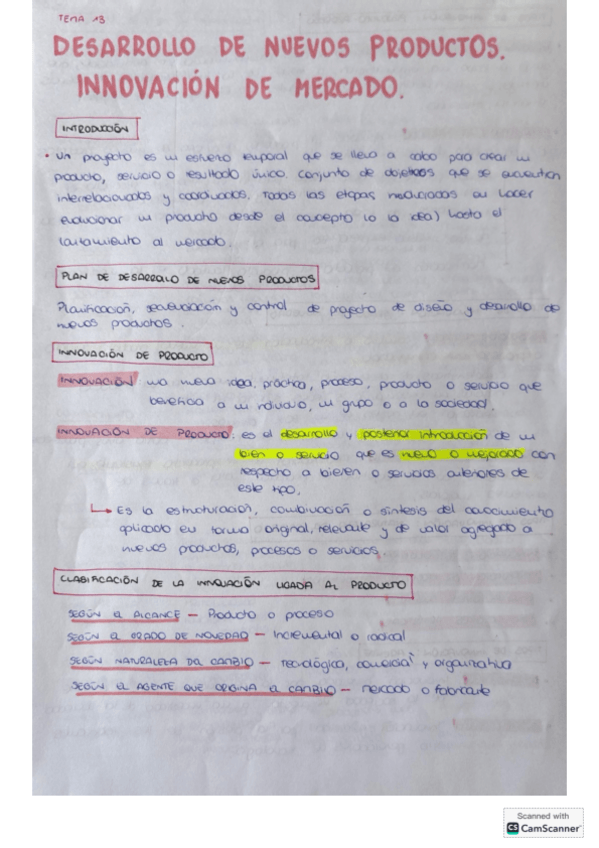 TEMA 13
DESARROLLO DE NUEVOS PRODUCTOS.
INNOVACIÓN DE MERCADO.
INTRODUCCIÓN
• Un proyecto es un esfuerzo temporal que se lleva a cabo para crear un
producto, servicio o resultado único. Conjunto de objetivos que se encuentran
interrelacionados y coordinados. Todas las etapas involucradas en hacer
evolucionar un producto desde el concepto (o la idea) hasta el
lanzamiento al mercado.
PLAN DE DESARROLLO DE NUEVOS PRODUCTOS
Planificación, secuenciación y control de proyecto de diseño y desarrollo de
nuevos productos.
INNOVACIÓN DE PRODUCTO
INNOVACIÓN una nueva idea, práctica, proceso, producto o servicio que
beneficia a un individuo, un grupo o a la sociedad.
INNOVACIÓN DE PRODUCTO: es el desarrollo y posterior introducción de un
bien o servicio que es nuevo o mejorado con
respecto a bienes o servicios anteriores de
este tipo.
↳ Es la estructuración, combinación o síntesis del conocimiento
aplicado en forma original, relevante y de valor agregado a
nuevos productos, procesos o servicios.
CLASIFICACIÓN DE LA INNOVACIÓN LIGADA AL PRODUCTO
SEGÚN EL ALCANCE - Producto o proceso
SEGÚN EL GRADO DE NOVEDAD - Incremental o radical
SEGÚN NATURALEZA DEL CAMBIO - Tecnológica, comercial y organizativa
SEGÚN EL AGENTE QUE ORIGINA EL CAMBIO - Mercado o fabricante
Scanned with
CS CamScanner